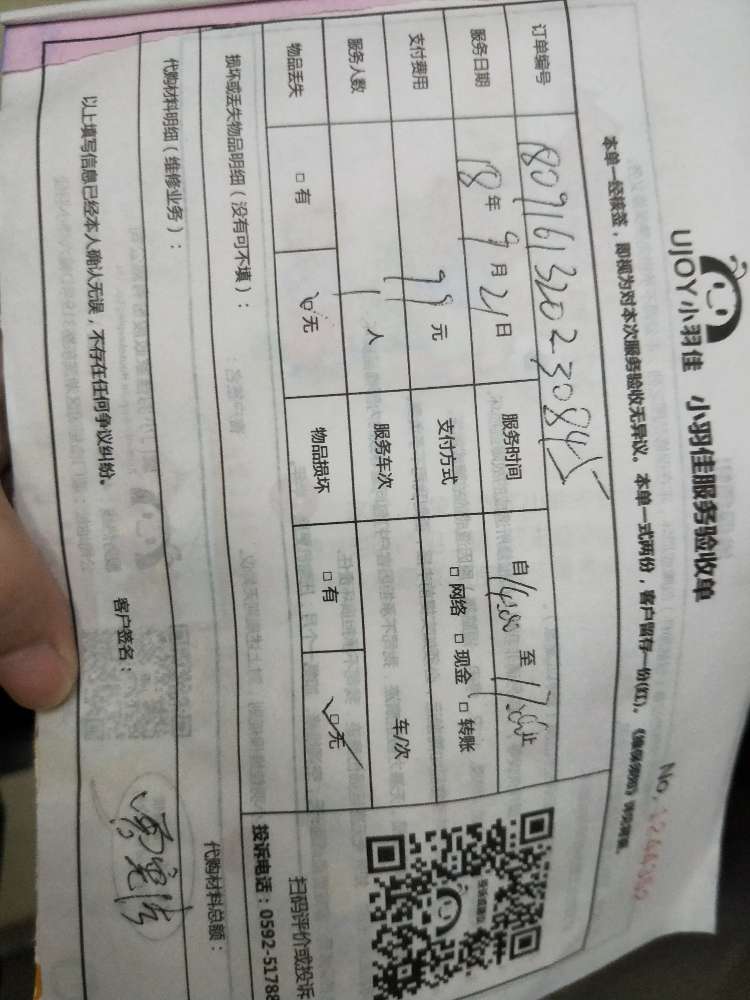 UJOY小羽佳 小羽佳服务验收单
No.
本单一经核签，即视为对本次服务验收无异议。本单一式两份，客户留存一份(红)。
订单编号 1809161320230845
服务日期 18年9月21日 服务时间 自14:00至17:00止
支付费用 99元 支付方式 □网络 □现金 □转账
服务人数 1人 服务车次 车/次
物品丢失 □有 □无 物品损坏 □有 □无
损坏或丢失物品明细（没有可不填）：
扫码评价或投诉
投诉电话：0592-51788
代购材料明细（维修业务）： 代购材料总额：
以上填写信息已经本人确认无误，不存在任何争议纠纷。 客户签名：